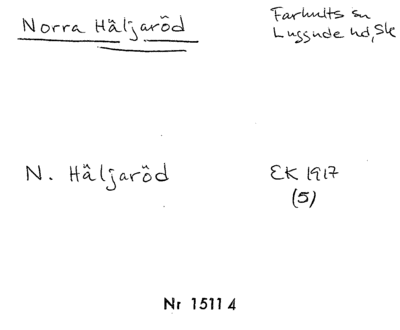 Norra Häljaröd
Farhults sn
Luggude hd, Sk
N. Häljaröd
EK 1917
(5)
Nr 1511 4